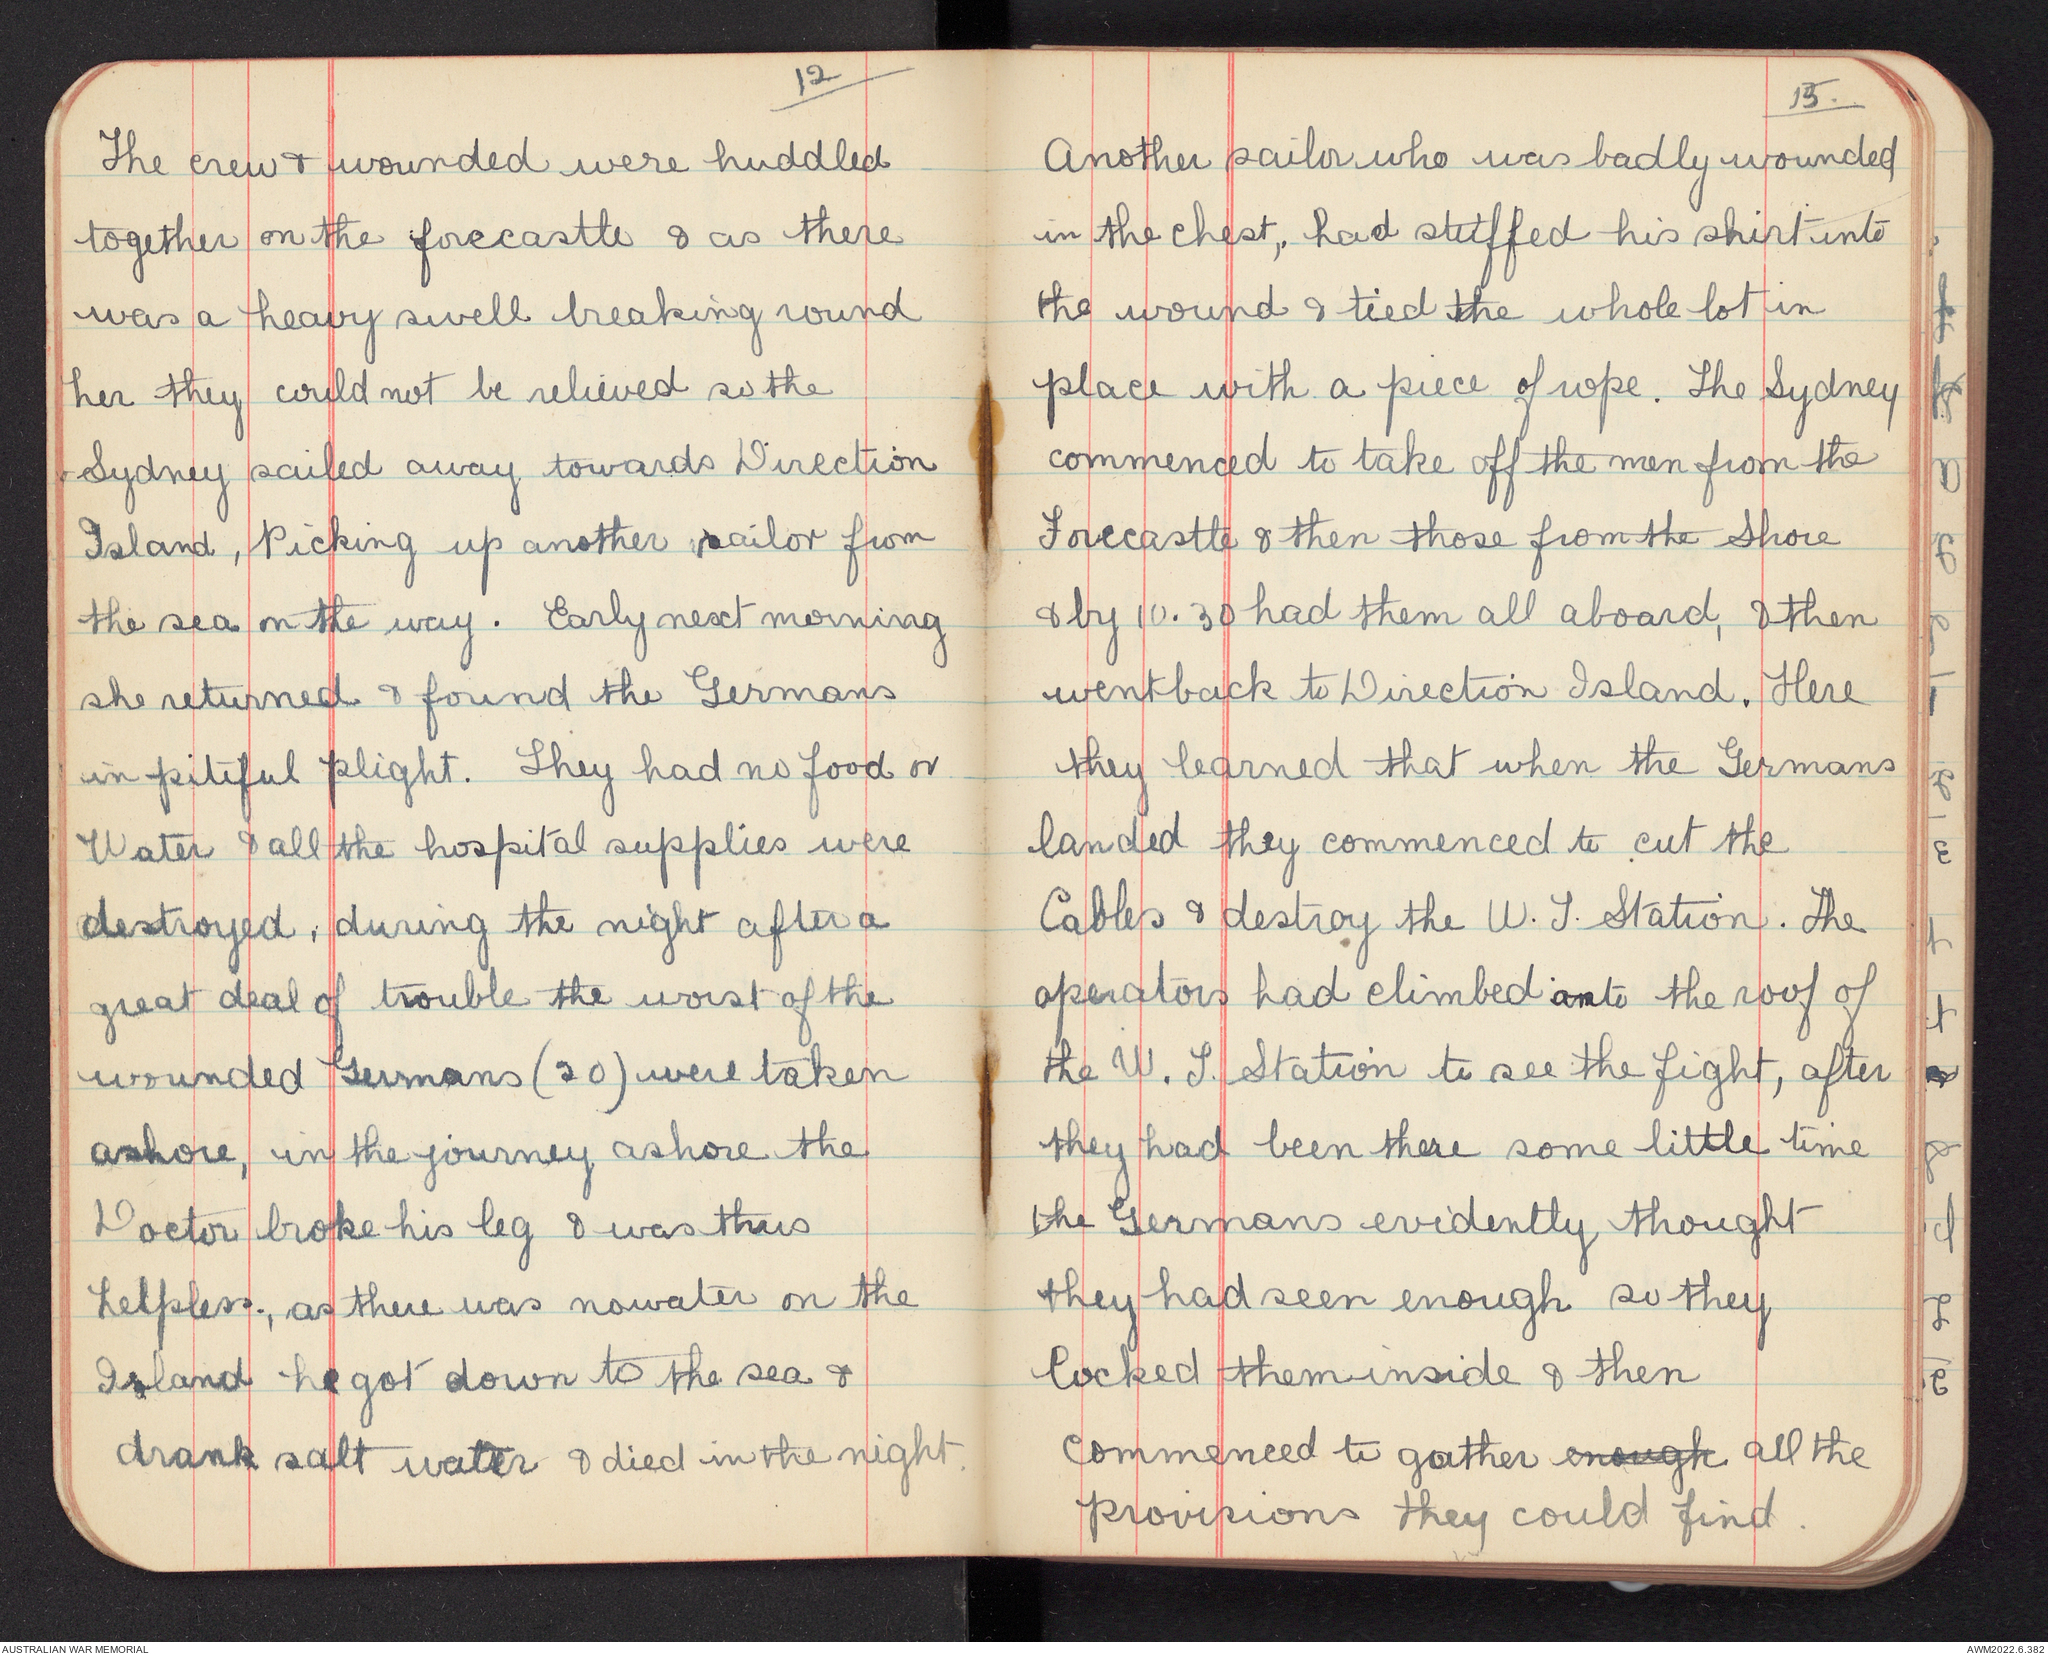 12
The crew & wounded were huddled
together on the forecastle & as there
was a heavy swell breaking round
her they could not be relieved so the
Sydney sailed away towards Direction
Island, Picking up another sailor from
the sea on the way. Early next morning
she returned & found the Germans
in pitiful plight. They had no food or
Water & all the hospital supplies were
destroyed, during the night after a
great deal of trouble the worst of the
wounded Germans (20) were taken
ashore, in the journey ashore the
Doctor broke his leg & was thus
helpless, as there was no water on the
Island he got down to the sea &
drank salt water & died in the night.
13.
Another sailor who was badly wounded
in the chest, had stuffed his shirt into
the wound & tied the whole lot in
place with a piece of rope. The Sydney
commenced to take off the men from the
Forecastle & then those from the Shore
& by 10.30 had them all aboard, & then
went back to Direction Island. Here
they learned that when the Germans
landed they commenced to cut the
Cables & destroy the W. T. Station. The
operators had climbed onto the roof of
the W. T. Station to see the fight, after
they had been there some little time
the Germans evidently thought
they had seen enough so they
locked them inside & then
commenced to gather enough all the
provisions they could find.
AUSTRALIAN WAR MEMORIAL
AWM2022.6.382